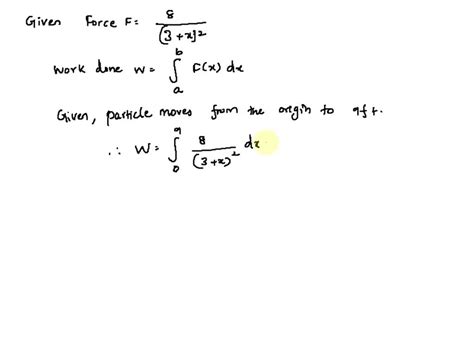 Given Force F= 8/(3+x)²
Work done W= ∫ₐᵇ F(x) dx
Given, particle moves from the origin to 9ft.
∴ W= ∫₀⁹ 8/(3+x)² dx